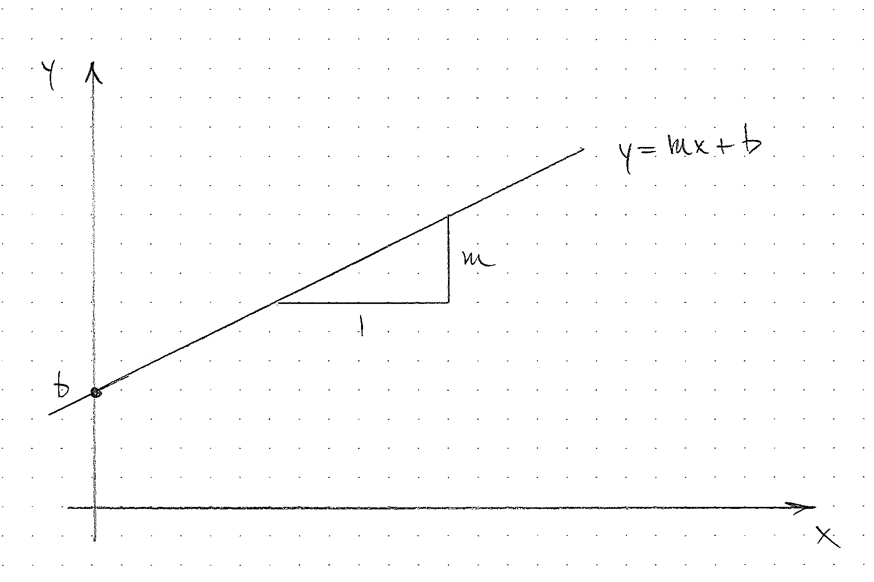 Y
y = mx + b
m
1
b
X